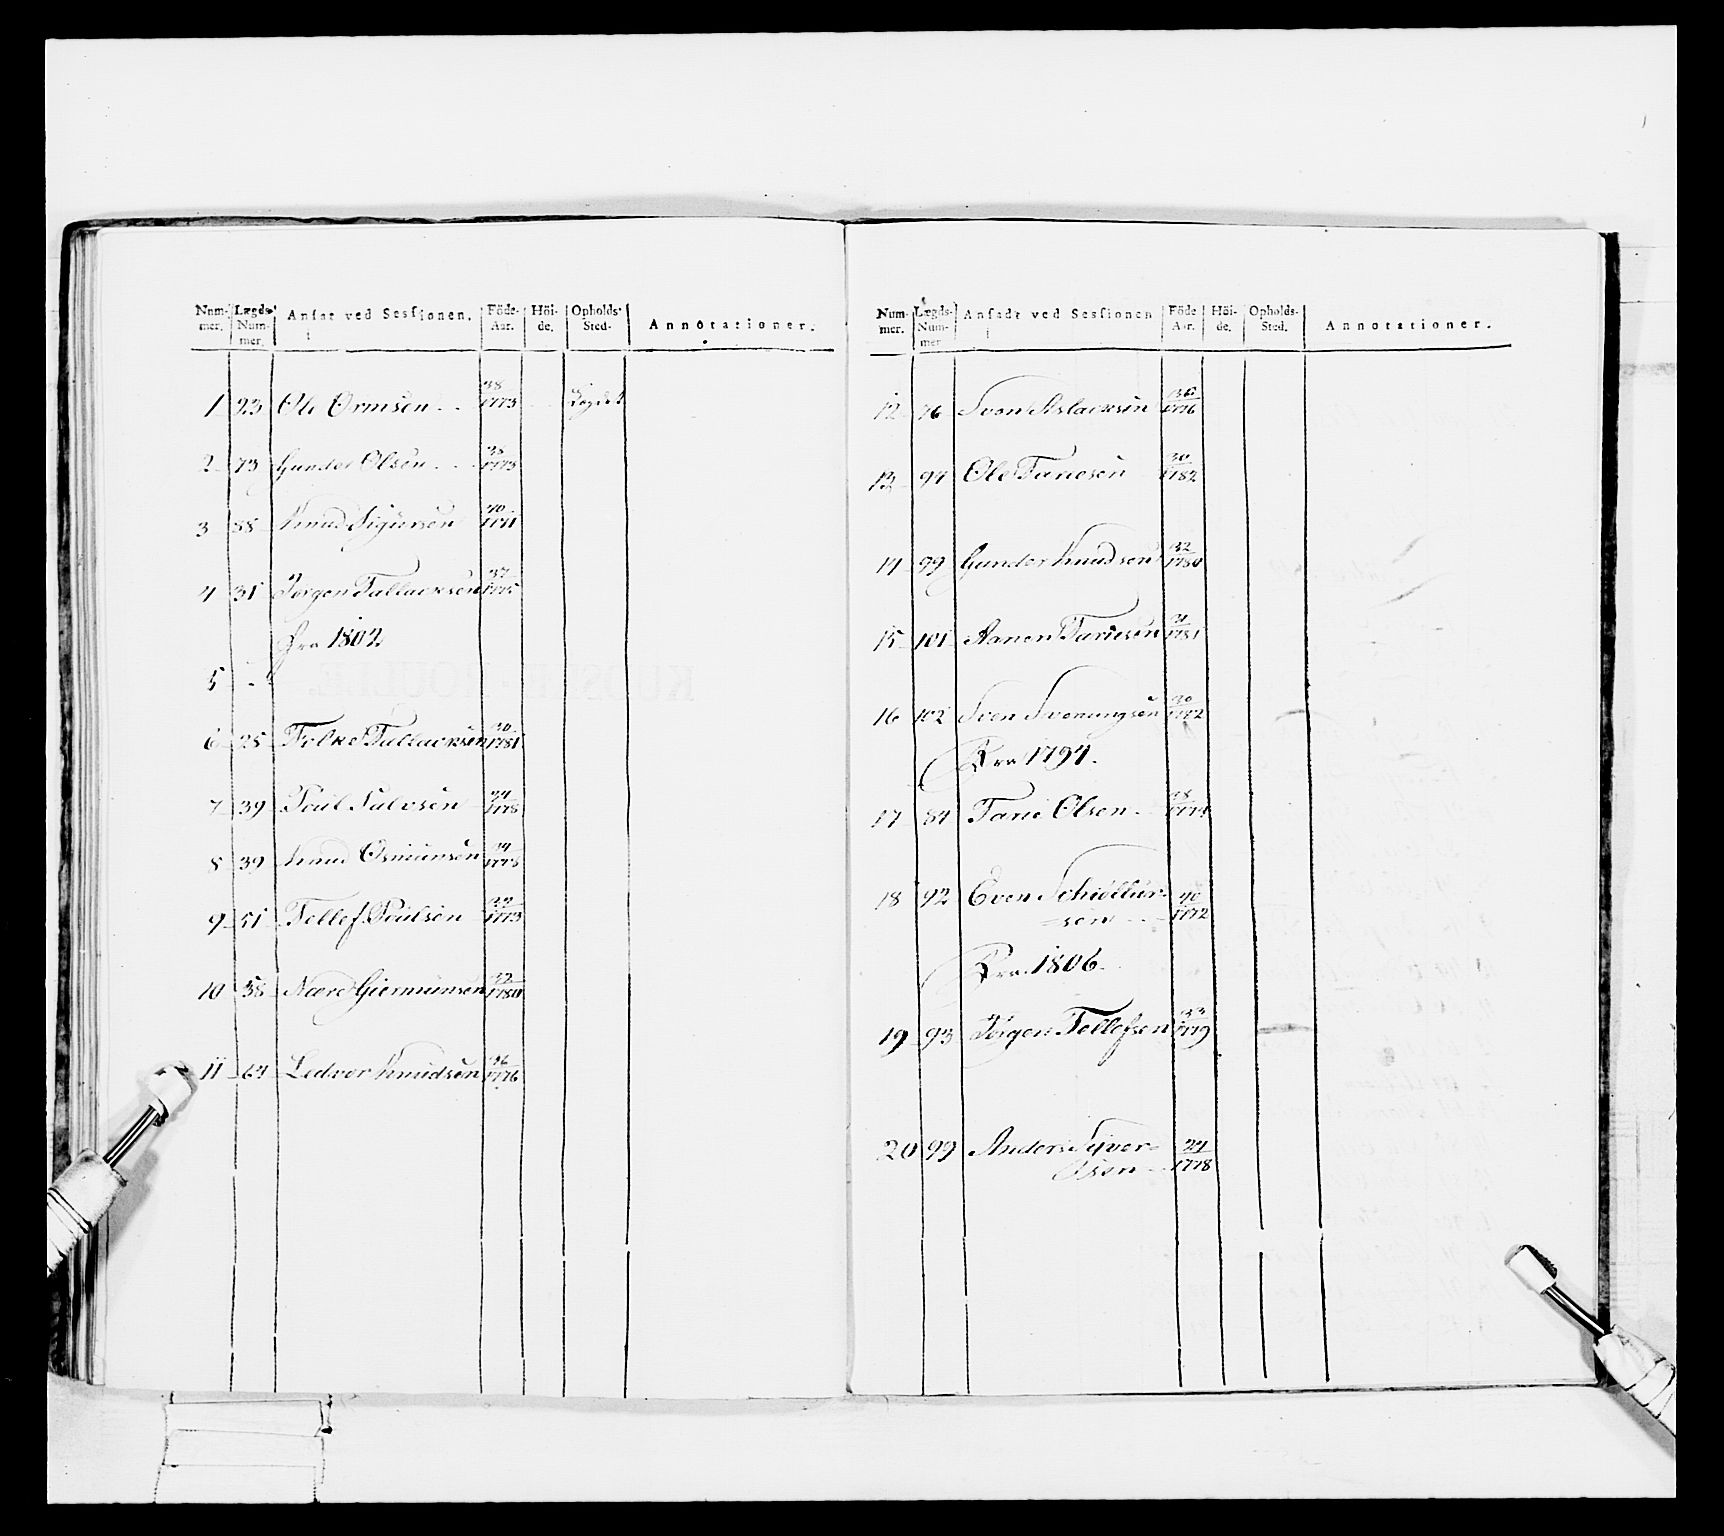 Num- mer. Lægds- Num- mer. Ansat ved Sessionen. Föde- Aar. Höi- de. Opholds- Sted. Annotationer.
1 23 Ole Ormsen 38 1773
2 73 Gunder Olsen 38 1773
3 88 Knud Sigursen 40 1771
4 31 Jørgen Tallacksen 37 1775
Fra 1802
5 -
6 25 Folke Tallacksen 30 1781
7 39 Poul Salvesen 34 1778
8 39 Knud Osmunsen 34 1778
9 51 Tellef Poulsen 39 1773
10 58 Nærel Giermunsen 32 1780
11 64 Ledvor Knudsen 36 1776
Num- mer. Lægds- Num- mer. Ansadt ved Sessionen Föde Aar. Höi- de. Opholds- Sted. Annotationer.
12 76 Sven Aslacksen 36 1776
13 94 Ole Tariesen 30 1782
14 99 Gunder Knudsen 32 1780
15 101 Aanen Tariesen 31 1781
16 102 Sven Svenungsen 1772
Fra 1794.
17 84 Tarie Olsen 38 1774
18 92 Even Schiöllur-
sen 40 1772
Fra 1806.
19 93 Jørgen Tellefsen 33 1779
20 99 Anders Syver-
sen 34 1778